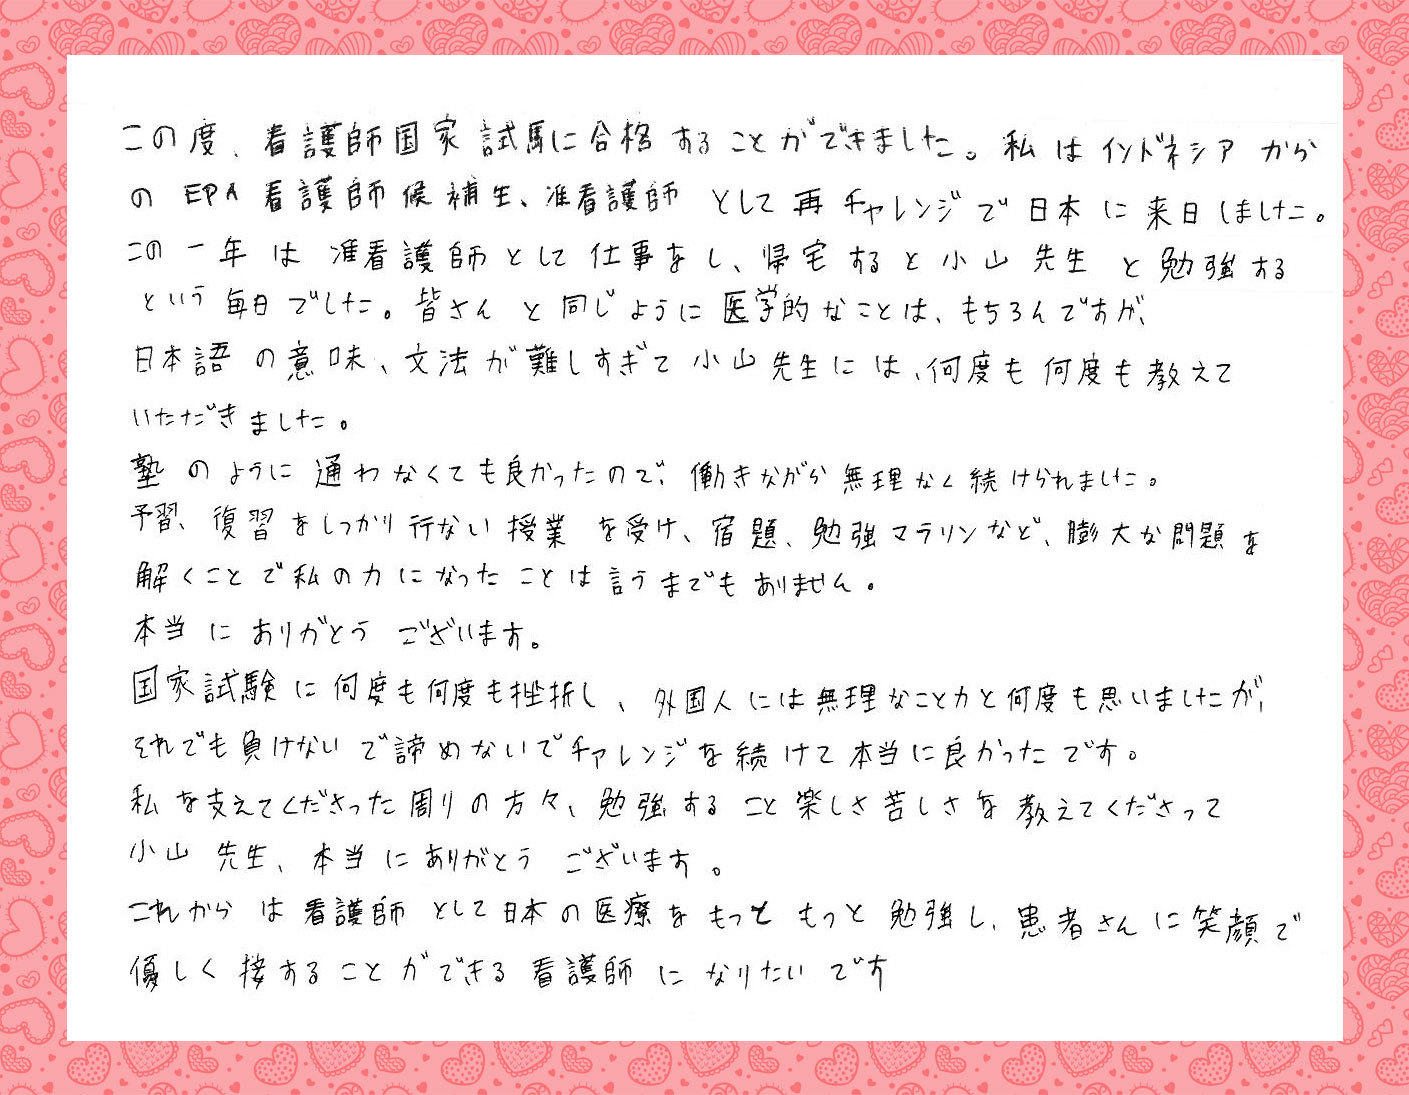 この度、看護師国家試馬に合格することができました。私はインドネシアから
のEPA看護師候補生、准看護師として再チャレンジで日本に来日しました。
この一年は准看護師として仕事をし、帰宅すると小山先生と勉強する
という毎日でした。皆さんと同じように医学的なことは、もちろんですが、
日本語の意味、文法が難しすぎて小山先生には、何度も何度も教えて
いただきました。
塾のように通わなくても良かったので、働きながら無理なく続けられました。
予習、復習をしっかり行ない授業を受け、宿題、勉強マラソンなど、膨大な問題を
解くことで私の力になったことは言うまでもありません。
本当にありがとうございます。
国家試験に何度も何度も挫折し、外国人には無理なことカと何度も思いましたが、
それでも負けないで諦めないでチャレンジを続けて本当に良かったです。
私を支えてくださった周りの方々、勉強すること楽しさ苦しさを教えてくださって
小山先生、本当にありがとうございます。
これからは看護師として日本の医療をもっともっと勉強し、患者さんに笑顔で
優しく接することができる看護師になりたいです